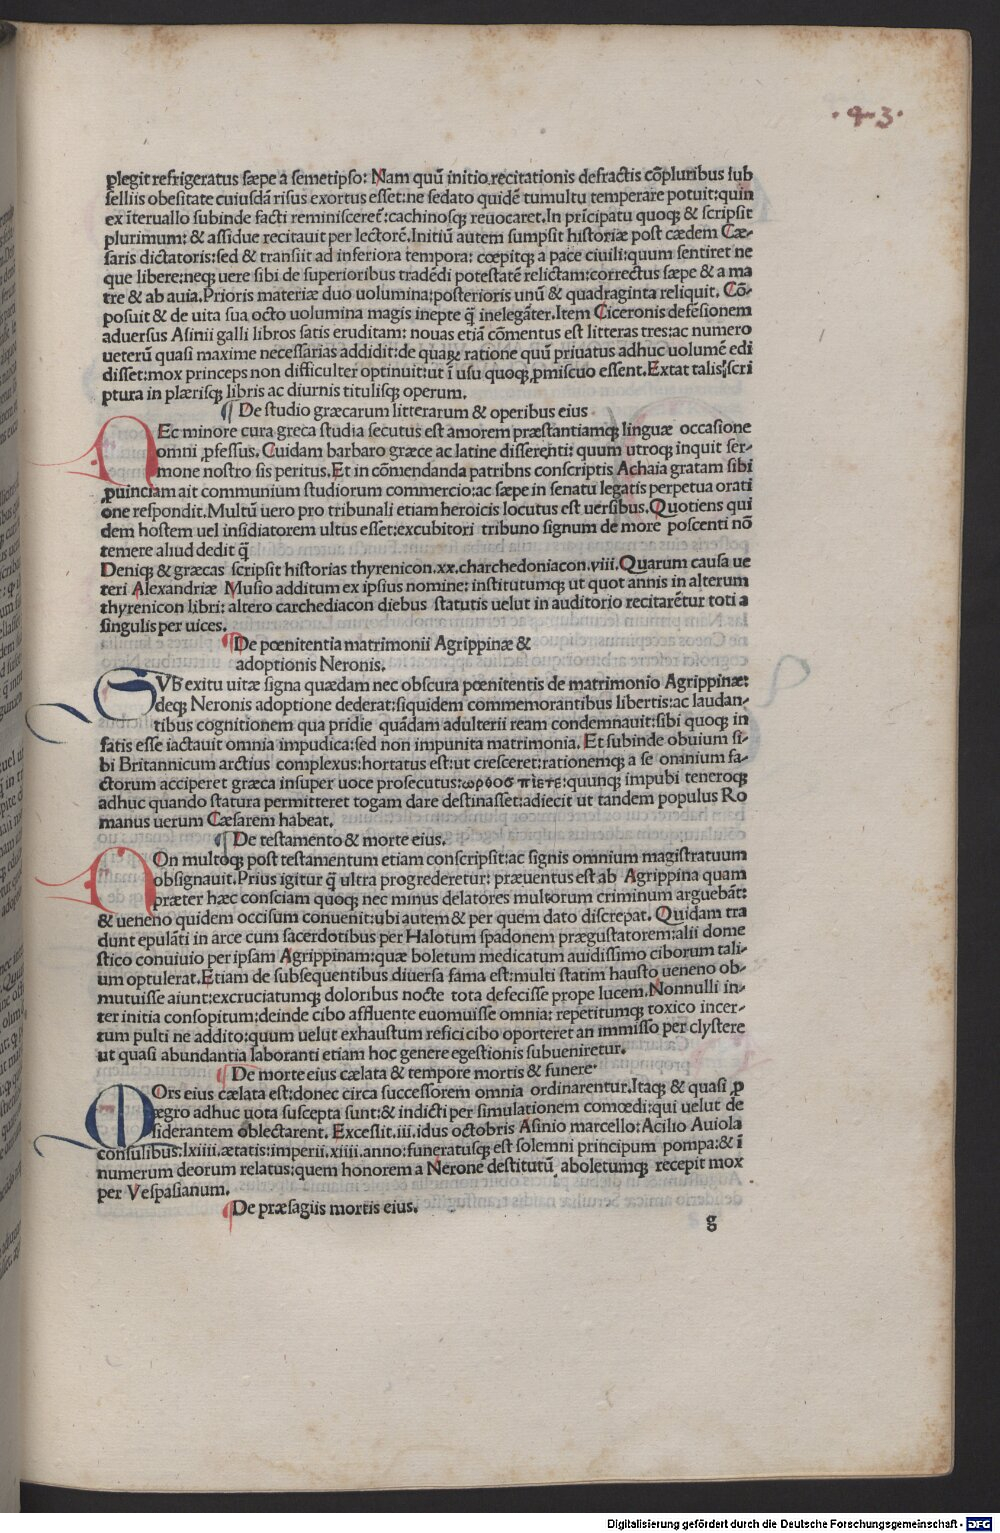 ·43·
plegit refrigeratus sæpe a semetipso: Nam quū initio recitationis defractis cōpluribus sub
selliis obesitate cuiusdā risus exortus esset: ne sedato quidē tumultu temperare potuit: quin
ex īteruallo subinde facti reminisceret̄: cachinosqꝫ reuocaret. In prīcipatu quoqꝫ & scripsit
plurimum: & assidue recitauit per lectorē. Initiū autem sumpsit historiæ post cædem Cæ-
saris dictatoris: sed & transiit ad inferiora tempora: cœpitqꝫ a pace ciuili: quum sentiret ne
que libere: neqꝫ uere sibi de superioribus tradēdi potestatē relictam: correctus sæpe & a ma
tre & ab auia. Prioris materiæ duo uolumina: posterioris unū & quadraginta reliquit. Cō-
posuit & de uita sua octo uolumina magis inepte q̄ inelegāter. Item Ciceronis defēsionem
aduersus Asinii galli libros satis eruditam: nouas etiā cōmentus est litteras tres: ac numero
ueterū quasi maxime necessarias addidit: de quaꝝ ratione quū priuatus adhuc uolumē edi
disset: mox princeps non difficulter optinuit: ut ī usu quoqꝫ ꝓmiscuo essent. Extat talis scri
ptura in plærisqꝫ libris ac diurnis titulisqꝫ operum.
¶ De studio græcarum litterarum & operibus eius
NEc minore cura greca studia secutus est amorem præstantiamqꝫ linguæ occasione
omni ꝓfessus. Cuidam barbaro græce ac latine disserenti: quum utroqꝫ inquit ser-
mone nostro sis peritus. Et in cōmendanda patribns conscriptis Achaia gratam sibi
ꝓuinciam ait communium studiorum commercio: ac sæpe in senatu legatis perpetua orati
one respondit. Multū uero pro tribunali etiam heroicis locutus est uersibus. Quotiens qui
dem hostem uel insidiatorem ultus esset: excubitori tribuno signum de more poscenti nō
temere aliud dedit q̄
Deniqꝫ & græcas scripsit historias thyrenicon. xx. charchedoniacon. viii. Quarum causa ue
teri Alexandriæ Musio additum ex ipsius nomine: institutumqꝫ ut quot annis in alterum
thyrenicon libri: altero carchediacon diebus statutis uelut in auditorio recitarētur toti a
singulis per uices.
¶ De pœnitentia matrimonii Agrippinæ &
adoptionis Neronis.
SVB exitu uitæ signa quædam nec obscura pœnitentis de matrimonio Agrippinæ:
deqꝫ Neronis adoptione dederat: siquidem commemorantibus libertis: ac laudan-
tibus cognitionem qua pridie quādam adulterii ream condemnauit: sibi quoqꝫ in
fatis esse iactauit omnia impudica: sed non impunita matrimonia. Et subinde obuium si-
bi Britannicum arctius complexus: hortatus est: ut cresceret: rationemqꝫ a se omnium fa-
ctorum acciperet græca insuper uoce prosecutus: ωρθοσ πιετε: quunqꝫ impubi teneroqꝫ
adhuc quando statura permitteret togam dare destinasset: adiecit ut tandem populus Ro
manus uerum Cæsarem habeat.
¶ De testamento & morte eius.
NOn multoqꝫ post testamentum etiam conscripsit: ac signis omnium magistratuum
obsignauit. Prius igitur q̄ ultra progrederetur: præuentus est ab Agrippina quam
præter hæc consciam quoqꝫ nec minus delatores multorum criminum arguebāt:
& ueneno quidem occisum conuenit: ubi autem & per quem dato discrepat. Quidam tra
dunt epulāti in arce cum sacerdotibus per Halotum spadonem prægustatorem: alii dome
stico conuiuio per ipsam Agrippinam: quæ boletum medicatum auidissimo ciborum tali-
um optulerat. Etiam de subsequentibus diuersa fama est: multi statim hausto ueneno ob-
mutuisse aiunt: excruciatumqꝫ doloribus nocte tota defecisse prope lucem. Nonnulli in-
ter initia consopitum: deinde cibo affluente euomuisse omnia: repetitumqꝫ toxico incer-
tum pulti ne addito: quum uelut exhaustum refici cibo oporteret an immisso per clystere
ut quasi abundantia laboranti etiam hoc genere egestionis subueniretur.
¶ De morte eius cælata & tempore mortis & funere
MOrs eius cælata est: donec circa successorem omnia ordinarentur. Itaqꝫ & quasi ꝓ
ægro adhuc uota suscepta sunt: & indicti per simulationem comœdi: qui uelut de
siderantem oblectarent. Excessit. iii. idus octobris Asinio marcello: Acilio Auiola
consulibus: lxiiii. ætatis: imperii. xiiii. anno: funeratusqꝫ est solemni principum pompa: & ī
numerum deorum relatus: quem honorem a Nerone destitutū aboletumqꝫ recepit mox
per Vespasianum.
¶ De præsagiis mortis eius.
g
Digitalisierung gefördert durch die Deutsche Forschungsgemeinschaft - DFG